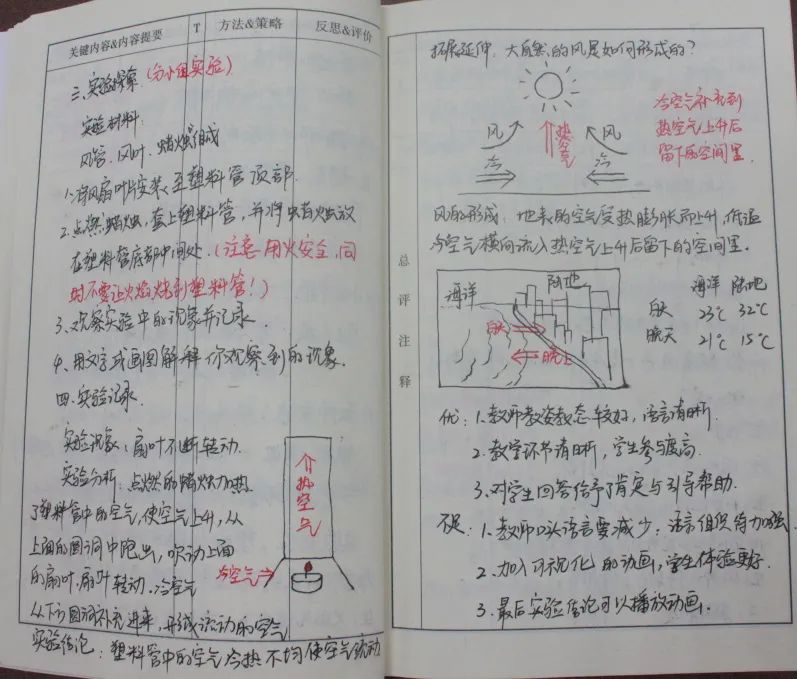 关键内容&内容提要 T 方法&策略 反思&评价
三.实验探索.(分小组实验)
实验材料:
风管、风叶、蜡烛组成
1.将风扇叶片安装至塑料管顶部.
2.点燃蜡烛,盖上塑料管,并将蜡烛放
在塑料管底部中间处.(注意:用火安全,同
时不要让火焰烧到塑料管!)
3、观察实验中的现象并记录
4、用文字或画图解释你观察到的现象.
四.实验记录.
实验现象:扇叶不断转动.
实验分析:点燃的蜡烛加热
了塑料管中的空气,使空气上升,从
上面的圆洞中跑出,吹动上面
的扇叶,扇叶转动.冷空气
从下方圆洞补充进来,形成流动的空气
实验结论:塑料管中的空气冷热不均使空气流动
热空气
冷空气
总评注释
拓展延伸:大自然的风是如何形成的?
冷空气补充到
热空气上升后
留下的空间里.
风 热空气 风
冷 冷
风的形成:地表的空气受热膨胀而上升,低温
冷空气横向流入热空气上升后留下的空间里.
海洋 陆地
白天
晚上
海洋 陆地
白天 23℃ 32℃
晚天 21℃ 15℃
优:1.教师教姿教态较好,语言清晰.
2.教学环节清晰,学生参与度高.
3.对学生回答给予了肯定与引导帮助.
不足:1.教师口头语言要减少,语言组织待加强.
2.加入可视化的动画,学生体验更好.
3.最后实验结论可以播放动画.